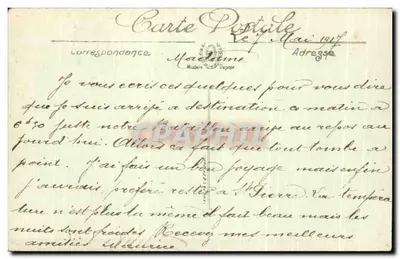 Carte Postale
Le 7 Mai 1917
Correspondance
Adresse
Madame
Je vous ecris ces quelques pour vous dire
que je suis arrifé a destination ce matin a
6h30 juste notre au repos au
jourd'hui. Allons ca fais que tout tombe a
point. J'ai fais un bon foyage mais enfin
j'aurais préferé resté a St Pierre La tempera
ture n'est plus la même il fait beau mais les
nuits sont froides Recevez mes meilleurs
amitiés